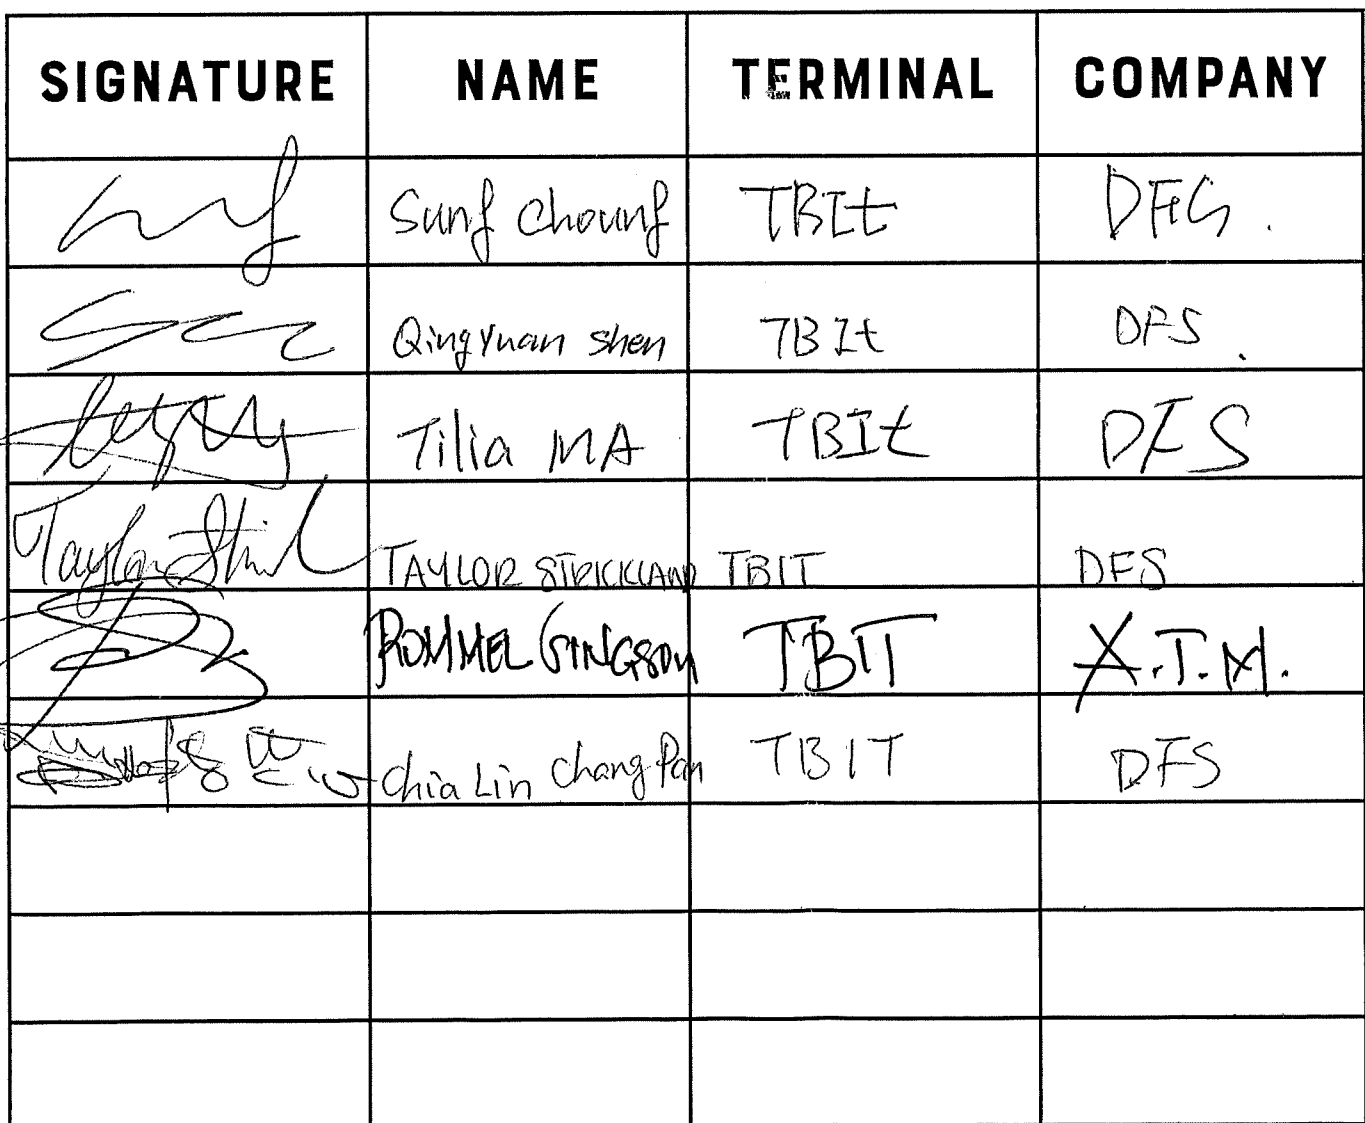 SIGNATURE NAME TERMINAL COMPANY
Sunf Chounf TBIt DFS.
Qingyuan Shen TBIt DFS.
Tilia MA TBIt DFS
Taylor TAYLOR STRICKLAND TBIT DFS
ROMMEL GINGSON TBIT A.T.M.
Chia Lin Chang Pan TBIT DFS